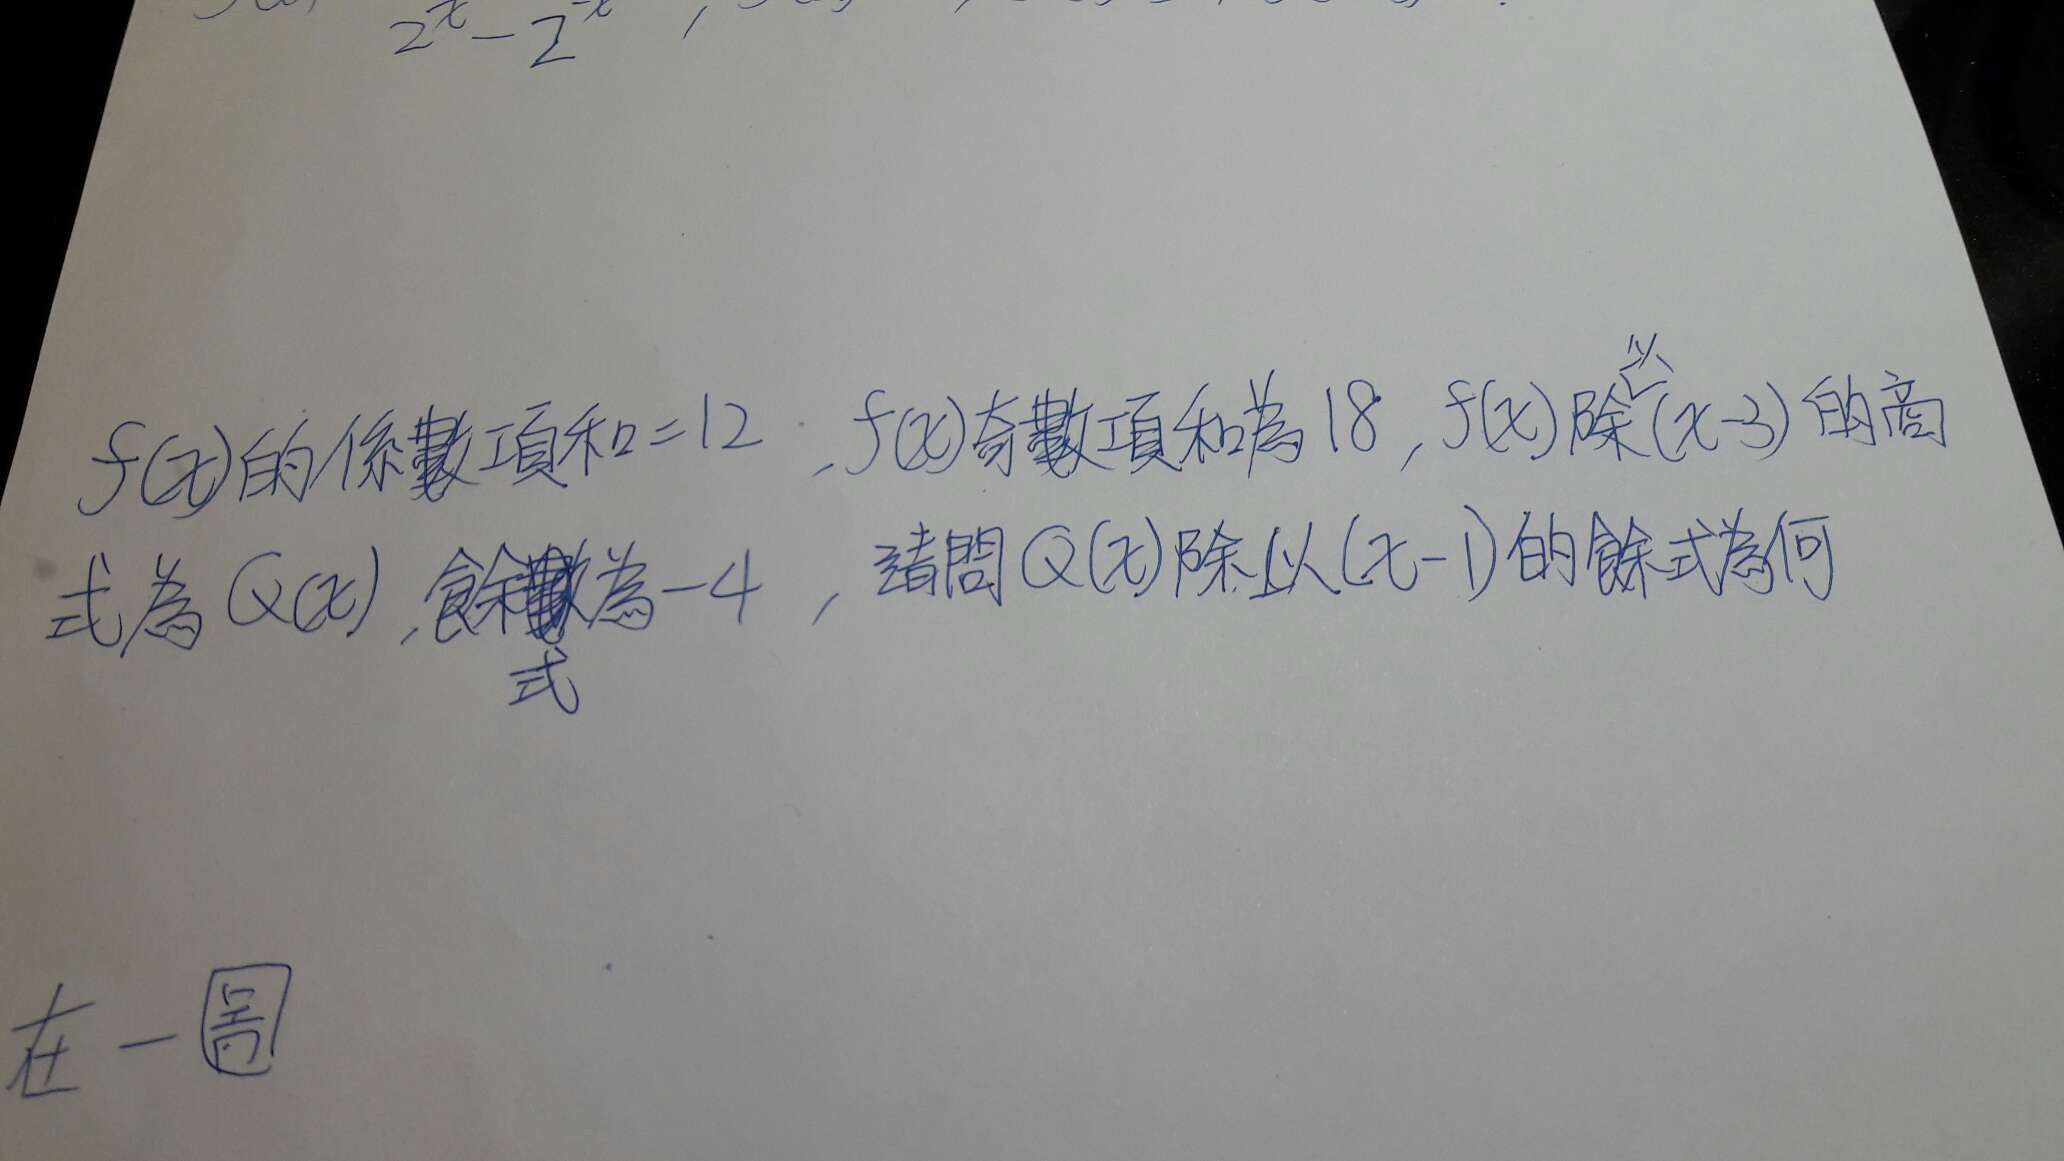 2^x - 2^-x ,
f(x)的係數項和=12 ,f(x)奇數項和為18,f(x)除以(x-3)的商
式為Q(x),餘式為-4,請問Q(x)除以(x-1)的餘式為何
在一